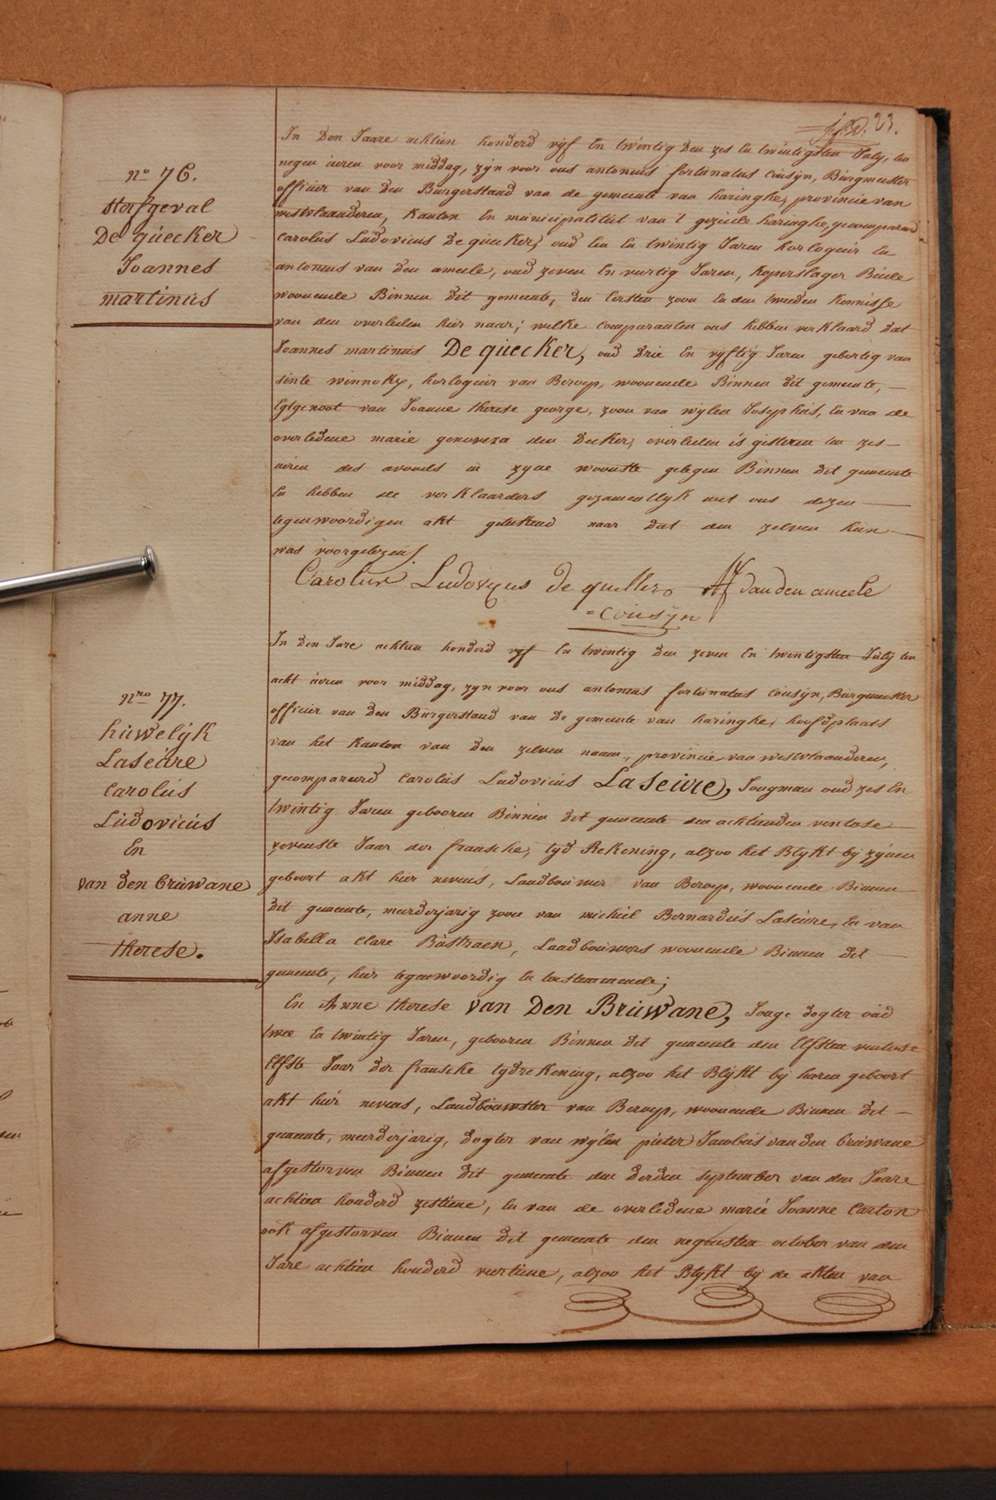 23.
no 76.
sterfgeval
De quecker
Joannes
martinus
In Den Jaare achtien honderd vyf En twintig den zes En twintigsten July, ten
negen uren voor middag, zijn voor ons antonius fortunatus Cousyn, Burgmeester
officier van den Burgerstand van de gemeente van haringhe, provincie van
westvlaanderen, Kanton En municipaliteit van 't gezeide haringhe, gecompareerd
Carolus Ludovicus De quecker, oud Een En twintig Jaren horlogeur En
antonius van den ameele, oud zeven En veertig Jaren, koperslager Beide
woonende Binnen Dit gemeente, den Eersten zoon En den tweeden Kennisse
van den overleden hier naar; welke comparanten ons hebben verklaard dat
Joannes martinus De quecker, oud Drie En vyftig Jaren geboortig van
sinte winnockx, horlogeur van Beroep, woonende Binnen Dit gemeente,
Egtgenoot van Joanne therese george, zoon van wylen Josephus, En van de
overledene marie genoveva den Decker, overleden is gisteren ten zes
uren des avonds in zyne woonste gelegen Binnen Dit gemeente
En hebben de verklaarders gezamentlyk met ons dezen
tegenwoordigen akt geteekend naar dat den zelven hun
was voorgelezen
Carolus Ludovicus de quecker van den ameele
Cousyn
nro 77.
huwelijk
Laseure
Carolus
Ludovicus
En
van den Bruwane
anne
therese.
In Den Jare achtien honderd vyf En twintig den zeven En twintigsten July ten
acht uren voor middag, zyn voor ons antonius fortunatus Cousyn, Burgmeester
officier van den Burgerstand van De gemeente van haringhe, hoofdplaats
van het Kanton van den zelven naam, provincie van westvlaanderen,
gecompareerd Carolus Ludovicus Laseure, Jongman oud zes En
twintig Jaren gebooren Binnen Dit gemeente den achtienden ventose
zevenste Jaar der fransche tyd Rekening, alzoo het Blykt bij zynen
geboort akt hier nevens, Landbouwer van Beroep, woonende Binnen
dit gemeente, meerderjarig zoon van michiel Bernardus Laseure, En van
Isabella Clare Bastraen, Landbouwers woonende Binnen Dit
gemeente, hier tegenwoordig En toestemmende;
En Anne therese van Den Bruwane, Jonge Dogter oud
twee En twintig Jaren, gebooren Binnen Dit gemeente den Elfsten ventose
Elfste Jaar der fransche tydrekening, alzoo het Blykt bij haren geboort
akt hier nevens, Landbouwster van Beroep, woonende Binnen Dit
gemeente, meerderjarig, Dogter van wylen pieter Jacobus van den bruwane
afgestorven Binnen Dit gemeente den derden september van den Jaare
achtien honderd zestiene, En van de overledene marie Joanne Carton
ook afgestorven Binnen Dit gemeente den negensten october van den
Jare achtien honderd veertiene, alzoo het Blykt bij de akten van